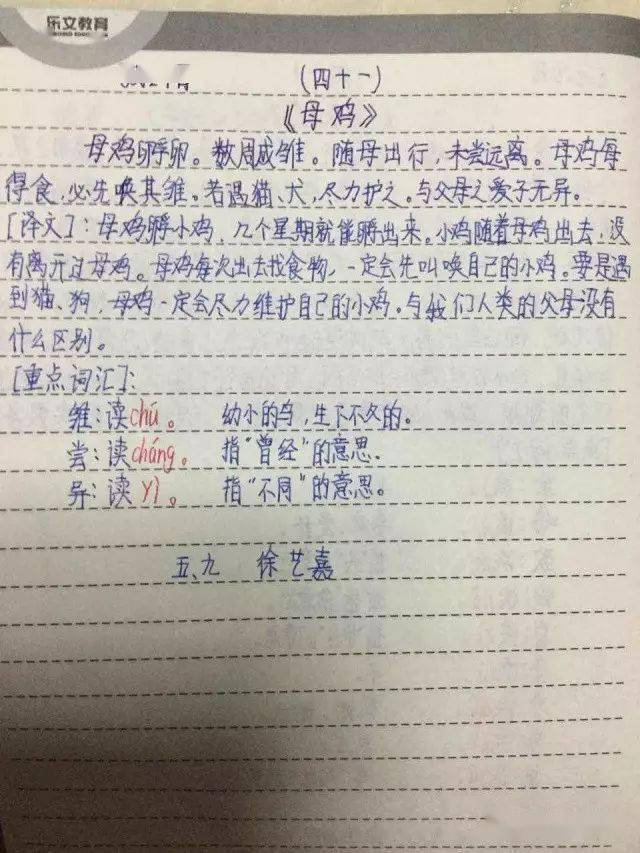 乐文教育
(四十一)
《母鸡》
母鸡孵卵。数周成雏。随母出行,未尝远离。母鸡每
得食,必先唤其雏。若遇猫、犬,尽力护之。与父母之爱子无异。
[译文]:母鸡孵小鸡,几个星期就能孵出来。小鸡随着母鸡出去,没
有离开过母鸡。母鸡每次出去找食物,一定会先叫唤自己的小鸡。要是遇
到猫、狗,母鸡一定会尽力维护自己的小鸡。与我们人类的父母没有
什么区别。
[重点词汇]:
雏:读chú。 幼小的鸟,生下不久的。
尝:读cháng。 指“曾经”的意思.
异:读yì。 指“不同”的意思。
五、九 徐艺嘉